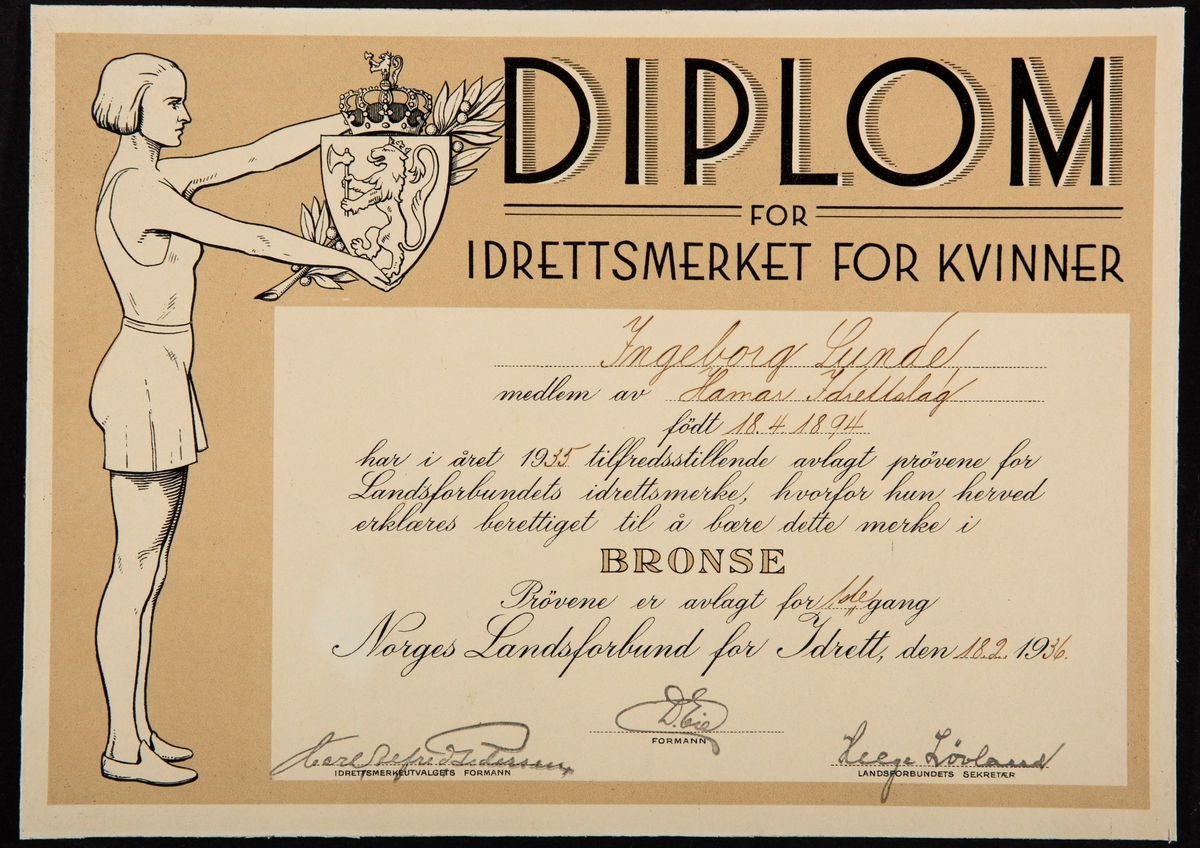 DIPLOM
FOR
IDRETTSMERKET FOR KVINNER
Ingeborg Lunde
medlem av Hamar Idrettslag
födt 18.4 1894
har i året 1935 tilfredsstillende avlagt prövene for
Landsforbundets idrettsmerke, hvorfor hun herved
erklæres berettiget til å bære dette merke i
BRONSE
Prövene er avlagt for 1ste gang
Norges Landsforbund for Idrett, den 18.2. 1936.
D. Eie
FORMANN
Carl Alfred Pedersen
IDRETTSMERKEUTVALGETS FORMANN
Helge Løvland
LANDSFORBUNDETS SEKRETÆR